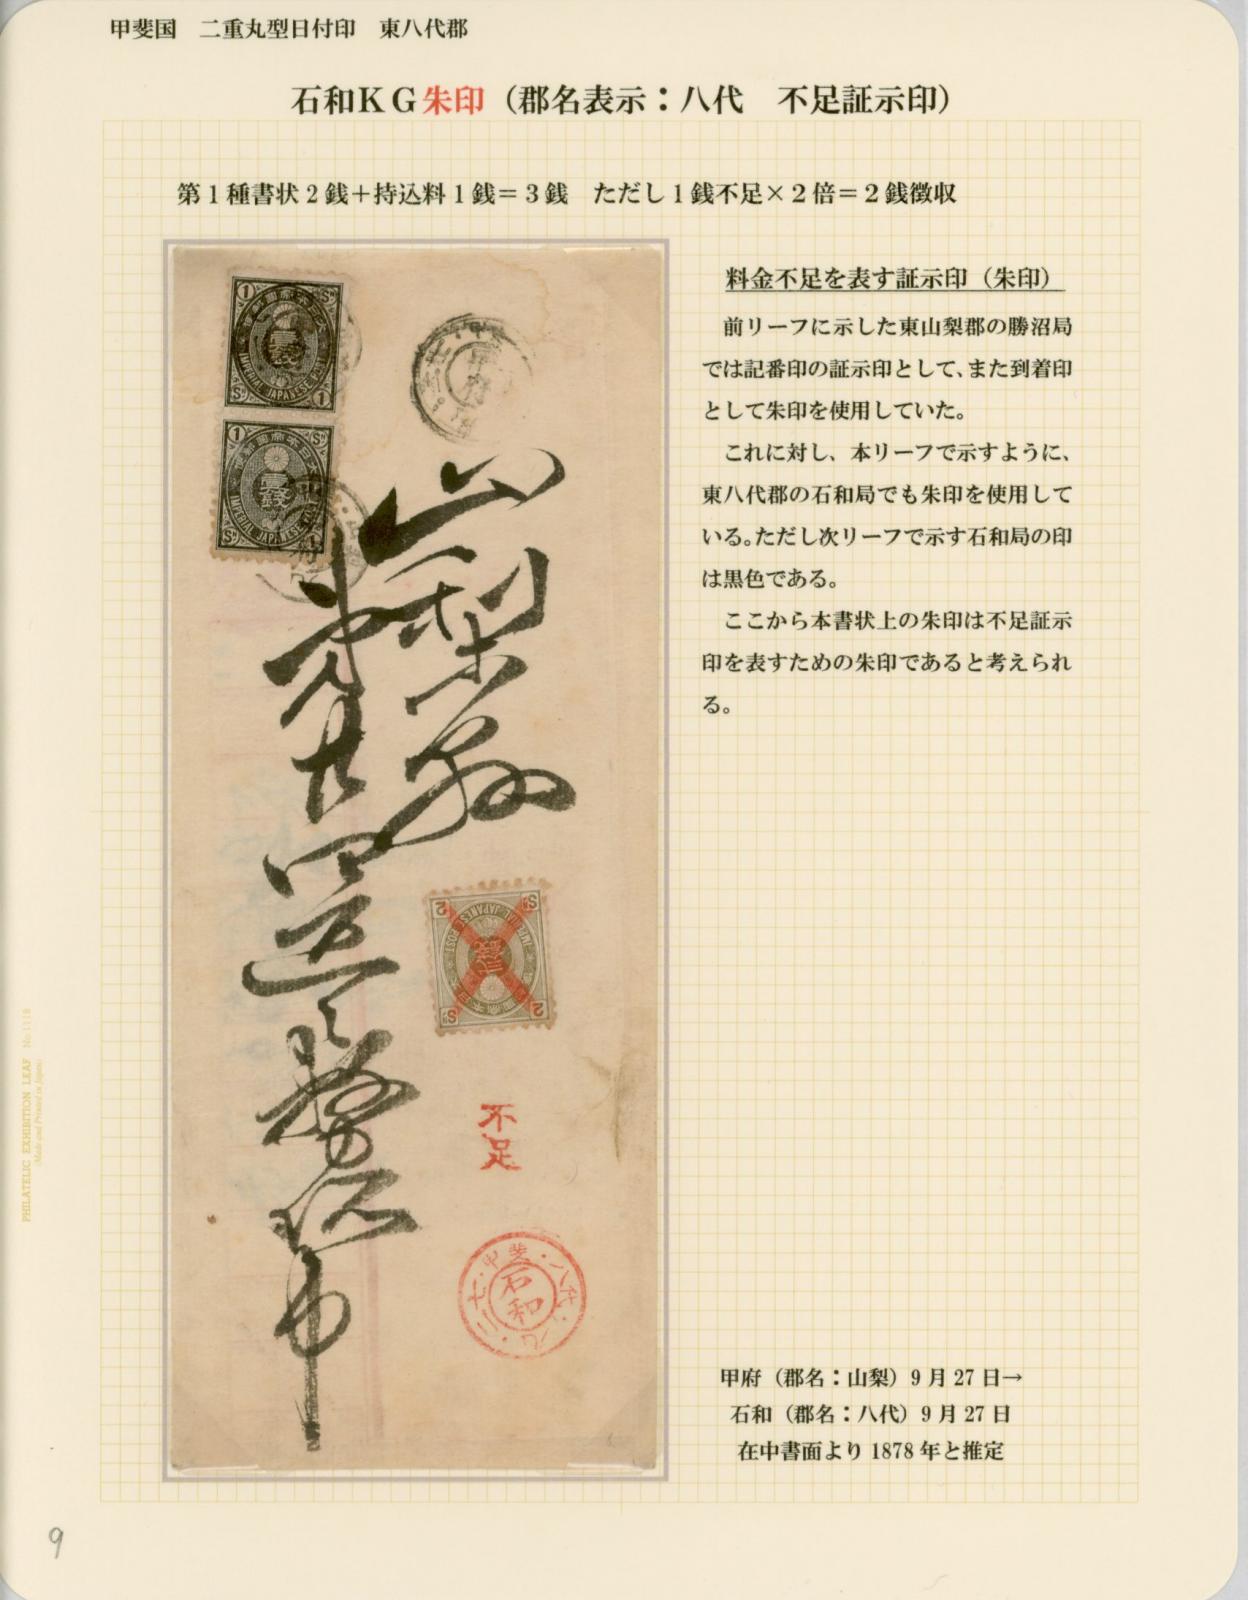 甲斐国　二重丸型日付印　東八代郡
石和KG朱印（郡名表示：八代　不足証示印）
第1種書状2銭＋持込料1銭＝3銭　ただし1銭不足×2倍＝2銭徴収
料金不足を表す証示印（朱印）
前リーフに示した東山梨郡の勝沼局
では記番印の証示印として、また到着印
として朱印を使用していた。
これに対し、本リーフで示すように、
東八代郡の石和局でも朱印を使用して
いる。ただし次リーフで示す石和局の印
は黒色である。
ここから本書状上の朱印は不足証示
印を表すための朱印であると考えられ
る。
1 Sⁿ
IMPERIAL JAPANESE POST
Sⁿ 1
1 Sⁿ
IMPERIAL JAPANESE POST
Sⁿ 1
甲府
山梨県
第廿四区
2 Sⁿ
IMPERIAL JAPANESE POST
弐銭
Sⁿ 2
不足
甲斐・八代・九・二七・
石和
甲府（郡名：山梨）9月27日→
石和（郡名：八代）9月27日
在中書面より1878年と推定
PHILATELIC EXHIBITION LEAF No.1118
(Made and Printed in Japan)
9